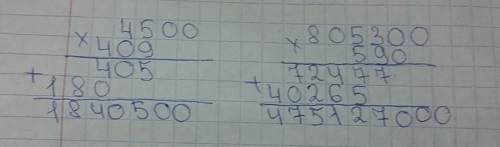 4500
× 409
405
+
180
1840500
805300
× 590
72477
+
40265
475127000